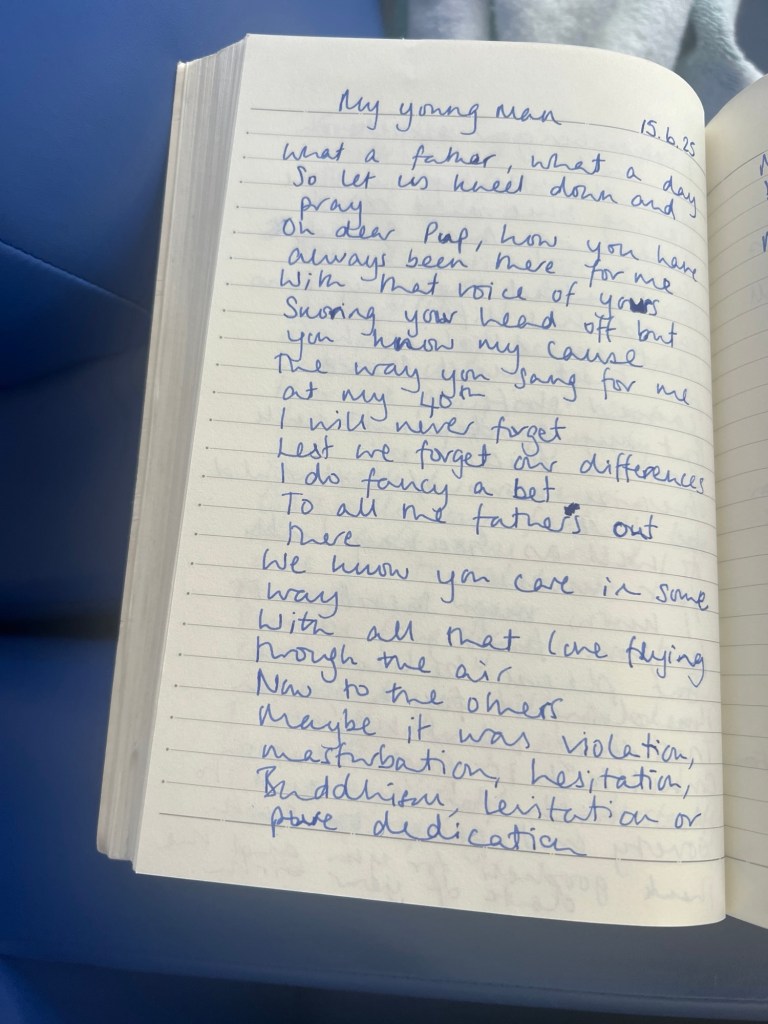 My young man
15.6.25
What a father, what a day
So let us kneel down and
pray
Oh dear Pup, how you have
always been there for me
With that voice of yours
Snoring your head off but
you know my cause
The way you sang for me
at my 40th
I will never forget
Lest we forget our differences
I do fancy a bet
To all the fathers out
there
We know you care in some
way
With all that love flying
through the air
Now to the others
Maybe it was violation,
masturbation, hesitation,
Buddhism, levitation or
pure dedication